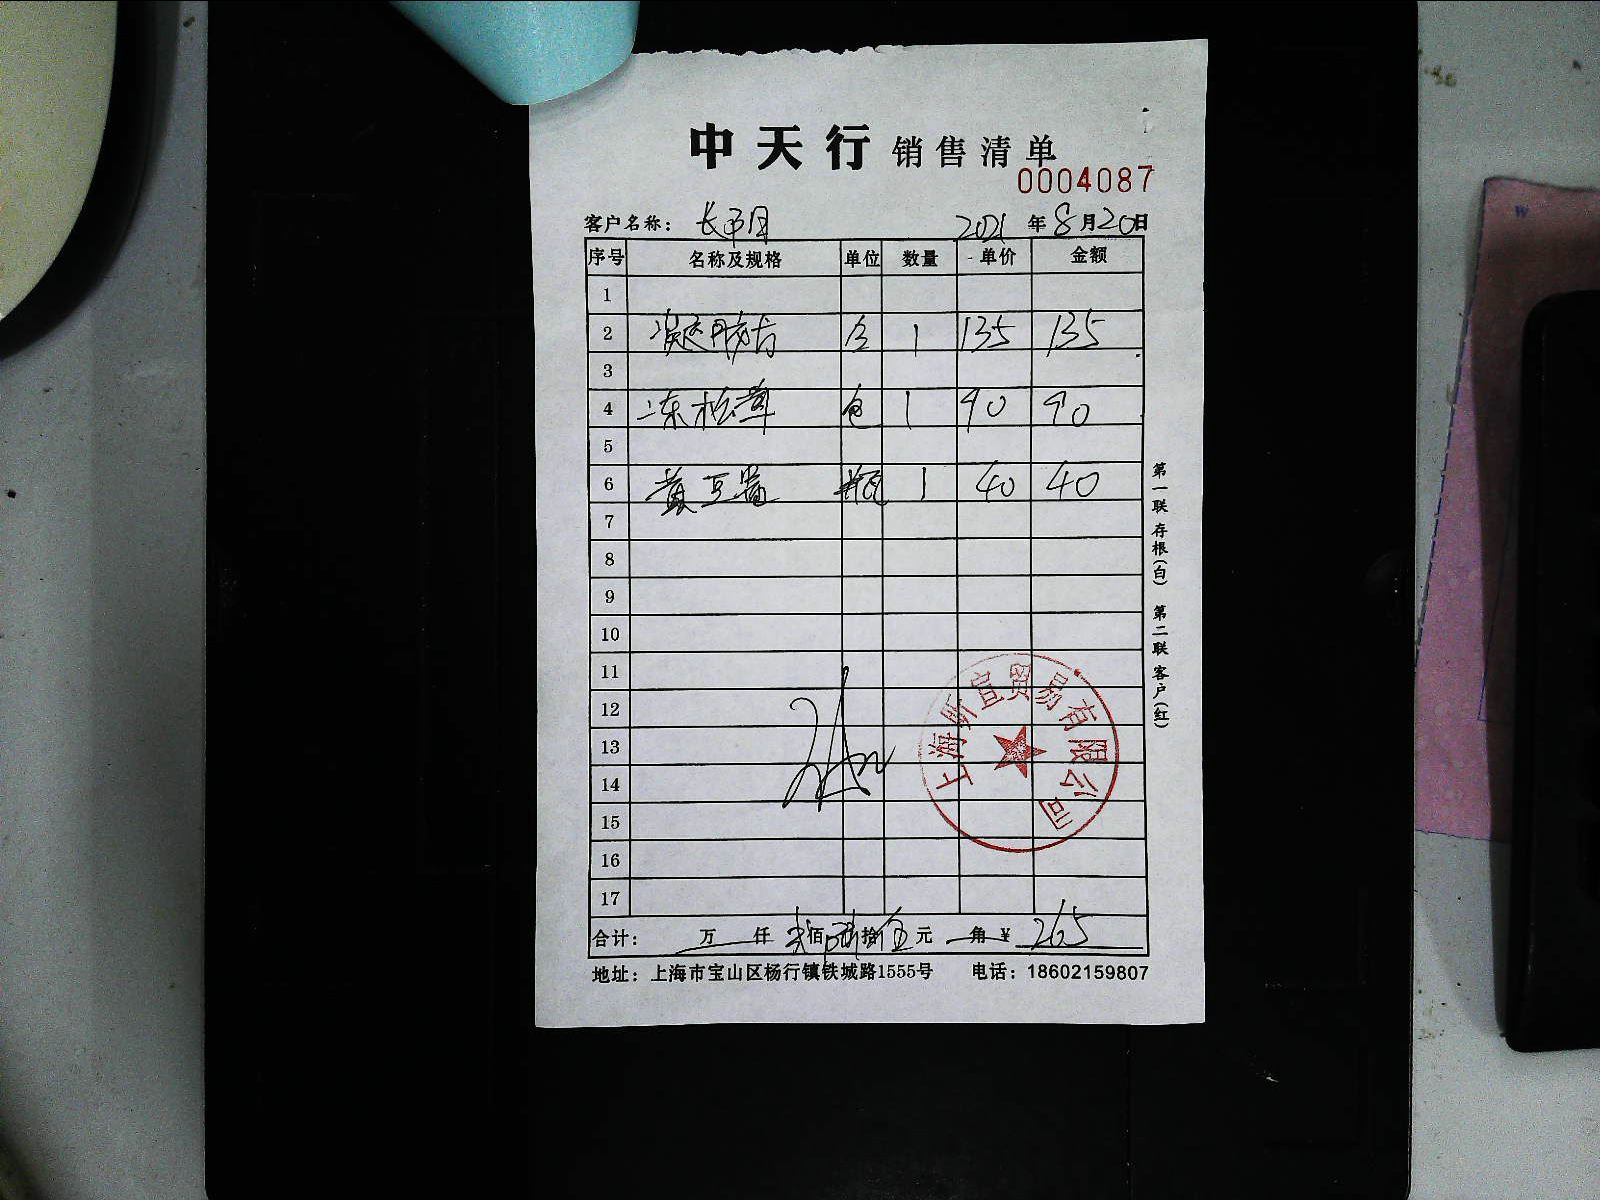 中天行 销售清单
0004087
客户名称： 2021年8月20日
序号 名称及规格 单位 数量 单价 金额
1
2 凝 1 135 135
3
4 冻松茸 包 1 90 90
5
6 黄豆酱 瓶 1 40 40
7
8
9
10
11
12
13
14
15
16
17
上海昕宣贸易有限公司
合计： 万 仟 贰佰陆拾伍元 角 ¥ 265
地址：上海市宝山区杨行镇铁城路1555号 电话：18602159807
第一联 存根(白) 第二联 客户(红)